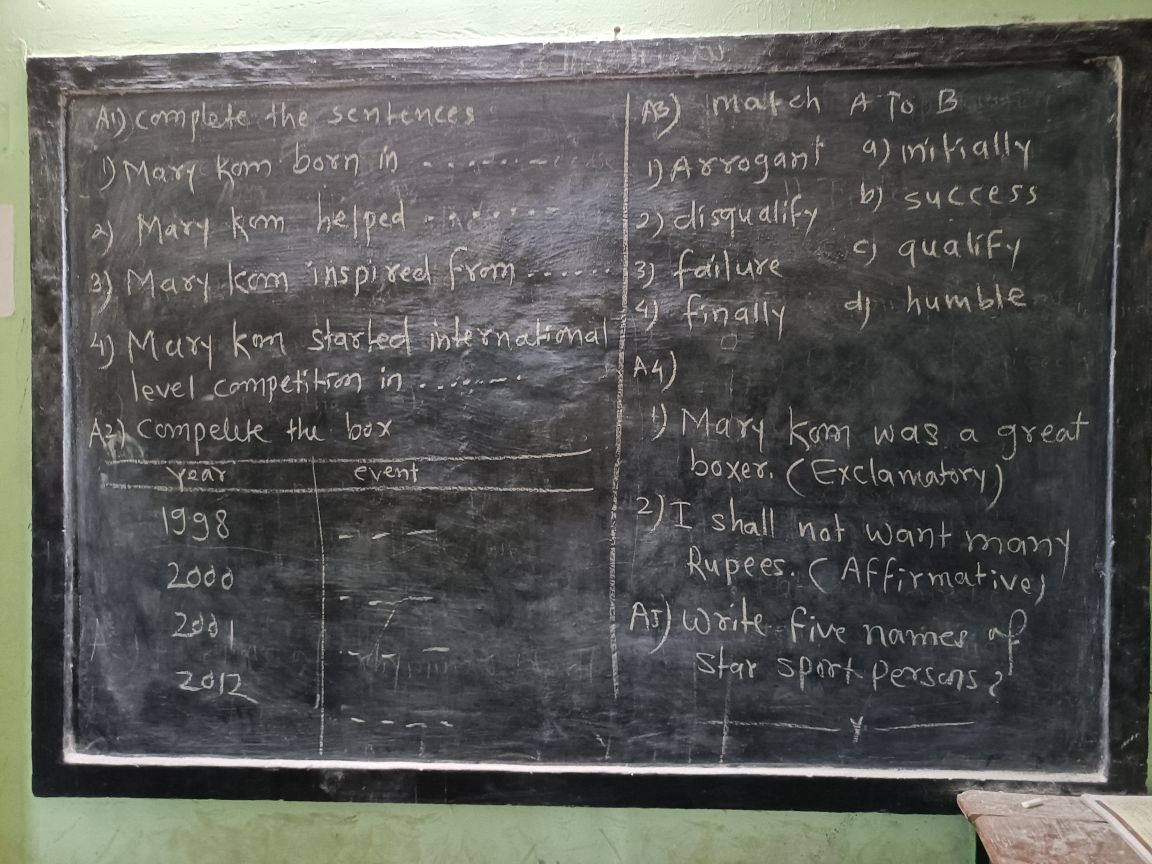 A1) complete the sentences
1) Mary kom born in ........
2) Mary kom helped ........
3) Mary kom inspired from .......
4) Mary kom started international
level competition in .......
A2) compelete the box
year event
1998 ---
2000 ---
2001 ---
2012 ----
A3) match A To B
1) Arrogant a) initially
2) disqualify b) success
3) failure c) qualify
4) finally d) humble
A4)
1) Mary kom was a great
boxer. (Exclamatory)
2) I shall not want many
Rupees. (Affirmative)
A5) write five names of
star sport persons?